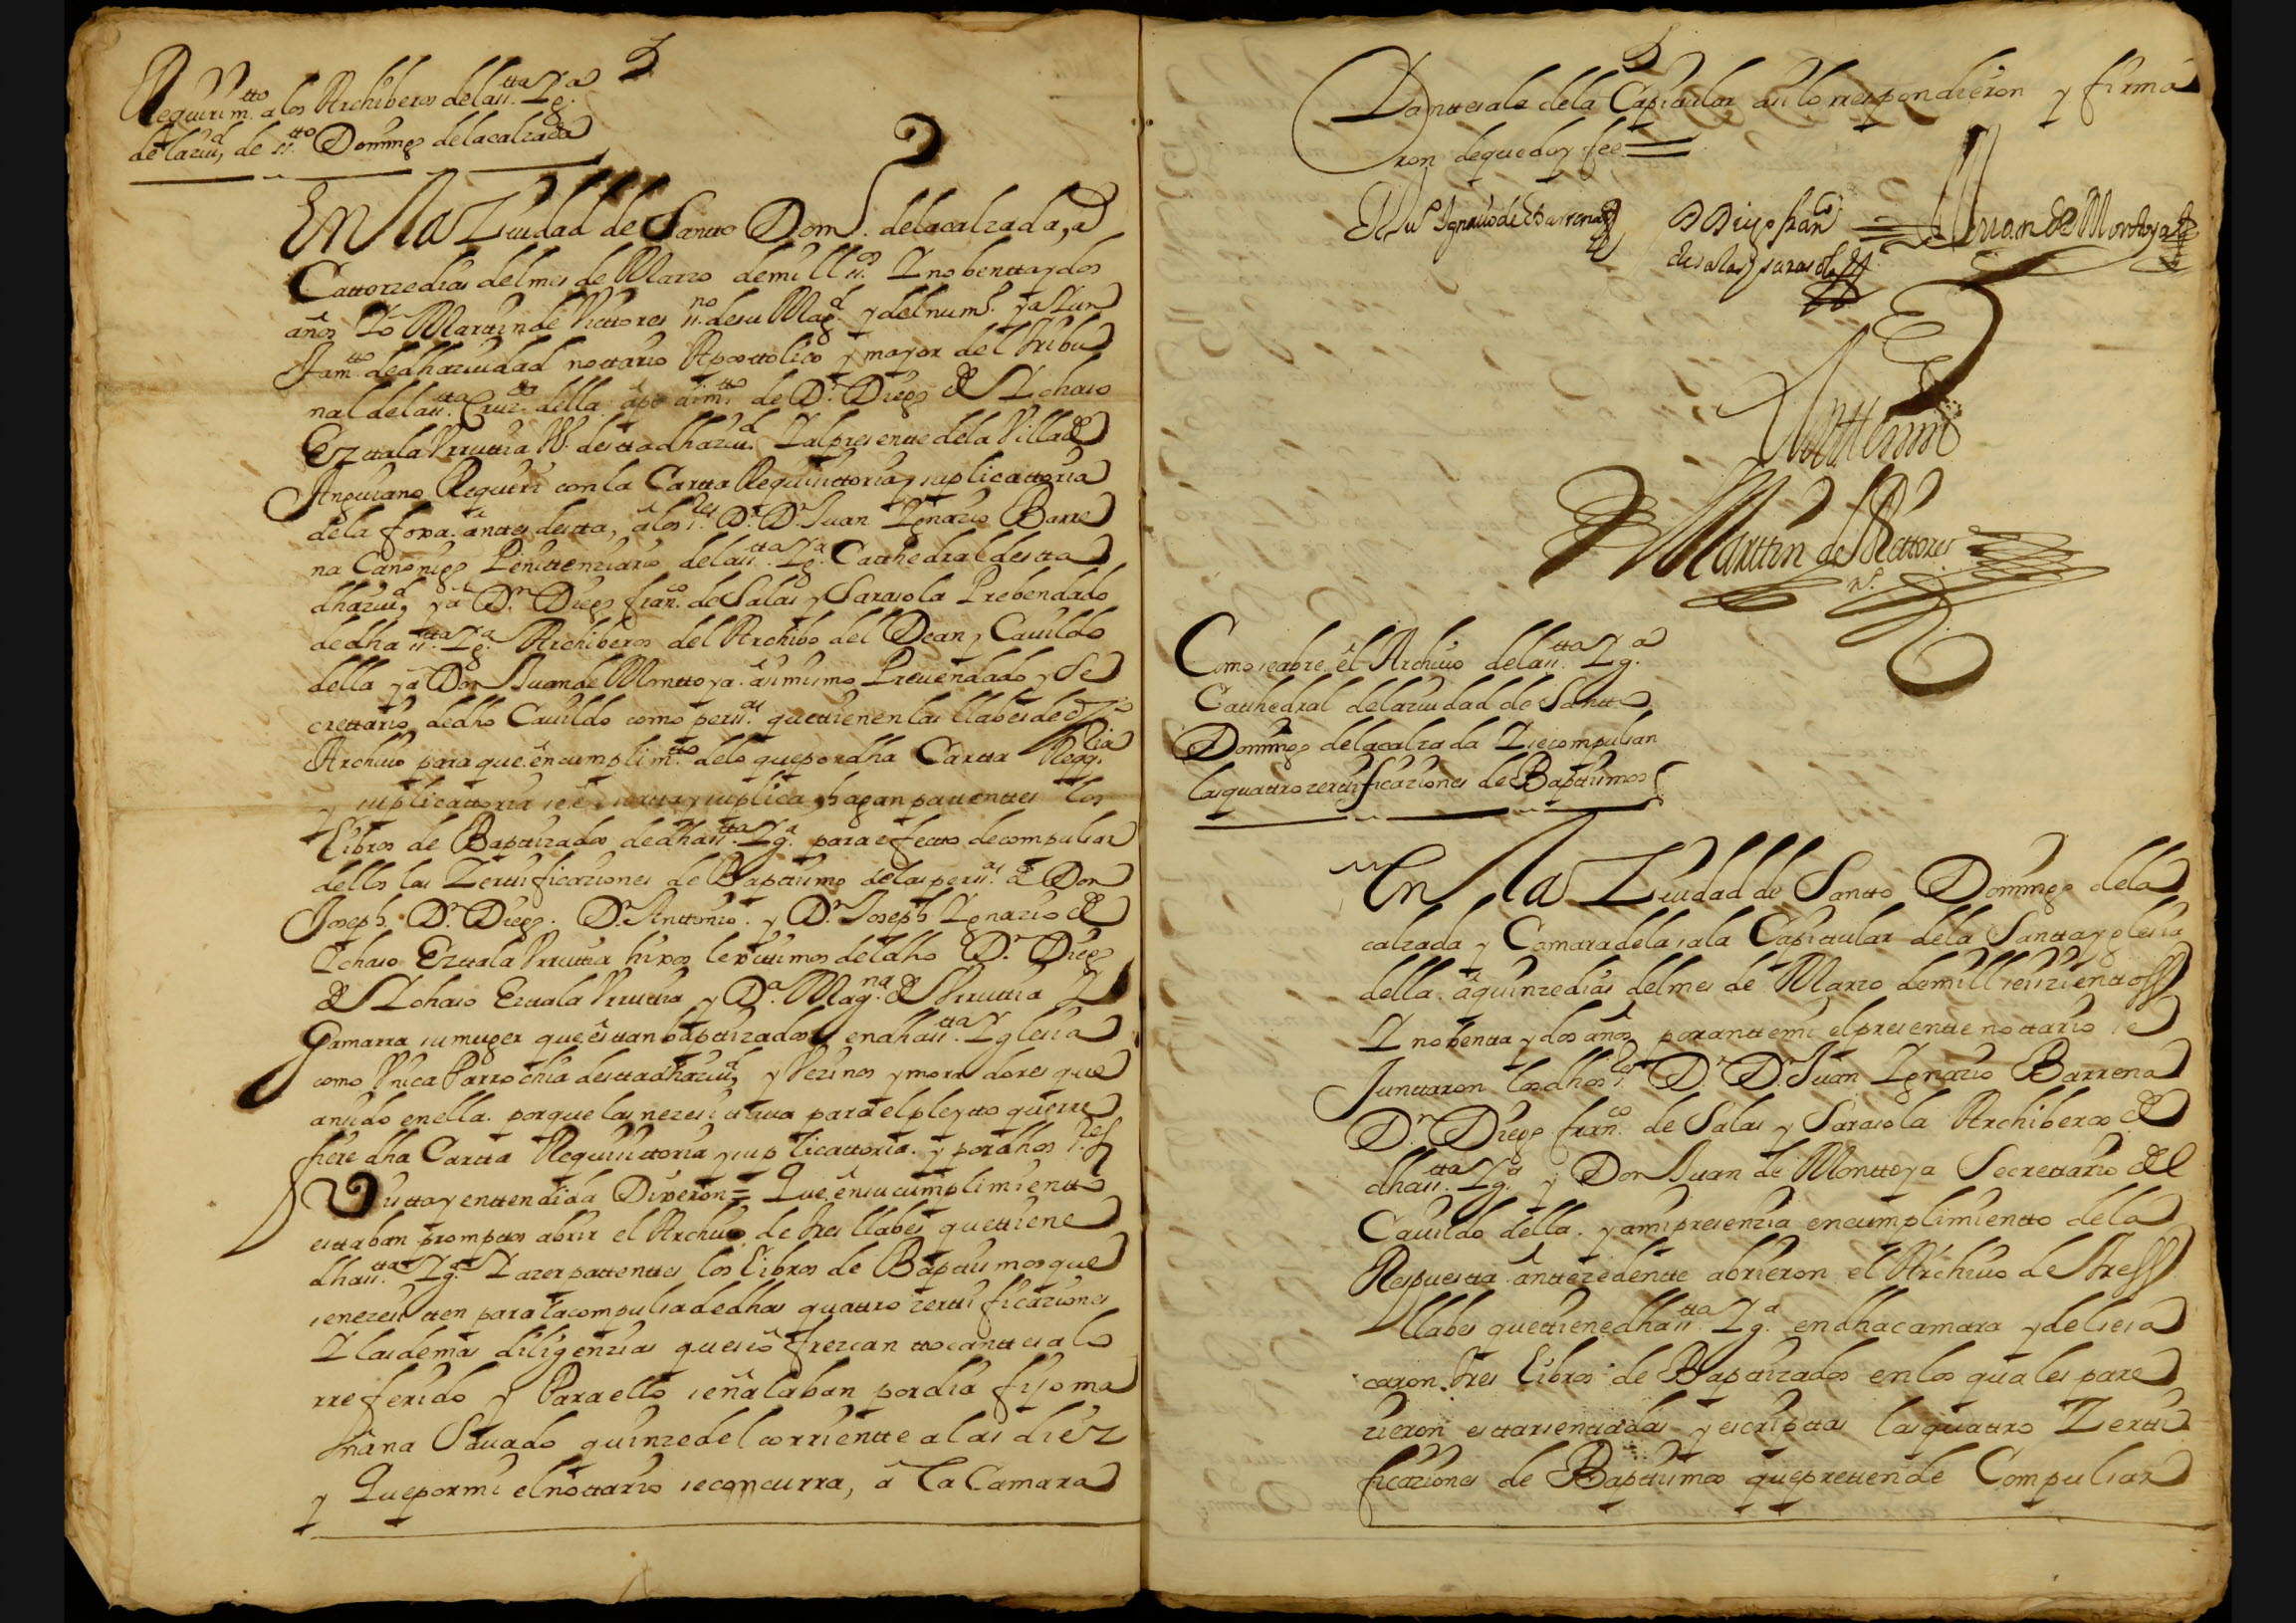 Requirim.tto a los Archiberos de la ss.tta Yg.a
de la ziu.d de ss.tto Domingo de la calzada
En la Ziudad de Santto Dom.o de la calzada, a
Cattorze dias del mes de Marzo de mill ss.os Y nobentta y dos
años Yo Marttin de Victtores ss.no de su Mag.d y del num.o y aiun
tam.tto de dha ziudad nottario Appostolico y mayor del Tribu
nal de la ss.tta Cruz.da della a pedim.tto de D.n Diego de Ochaso
Ezttala Vrruttia V.o de stta dha ziu.d Y al presentte de la Villa de
Anguiano Requeri con la Cartta Requisittoria y suplicattoria
de la foxa anttes destta, a los s.res D.r D.n Juan Ygnazio Barre
na Canonigo Penittenziario de la ss.tta Yg.a Catthedral de stta
dha ziu.d y a D.n Diego fran.co de Salas y Sarasola Prebendado
de dha ss.tta Yg.a Archiberos del Archibo del Dean y Cauildo
della y a Don Juan de Monttoya asimismo Preuendado y Se
crettario de dho Cauildo como perss.as que ttienen las llabes de dho
Archiuo para que en cumplim.tto de lo que por dha Cartta Reqq.ria
y suplicattoria se exortta y suplica hagan pattenttes los
Libros de Bapttizados de dha ss.tta Yg.a para efectto de compulsar
dellos las Zerttificaziones de Bapttismo de las perss.as de Don
Joseph. D.n Diego. D.n Anttonio. y D.n Joseph Ygnazio de
Ochaso Ezttala Vrruttia hixos lexittimos del dho D.n Diego
de Ochaso Ezttala Vrruttia y D.a Mag.na de Vrruttia Y
Gamarra su muger que esttan bapttizados en dha ss.tta Yglesia
como Vnica Parrochia de stta dha ziu.d y Vezinos y moradores que
an sido en ella. porque las nezesittaua para el pleytto que rre
fiere dha Cartta Requisittoria y suplicattoria. y por dhos s.res
Vistta y enttendida Dixeron = Que en su cumplimientto
esttaban promptos abrir el Archiuo de tres llabes que ttiene
dha ss.tta Yg.a Y azer pattenttes los Libros de Bapttismos que
se nezesitten para la compulsa de dhas quattro zerttificaziones
Y las demas diligenzias que se ofrezcan ttocanttes a lo
rreferido y Para ello señalaban por dia fijo ma
ñana Sauado quinze del corrientte a las diez
y Que por mi el nottario se concurra, a la Camara
Dantte sala de la Capittular asi lo rrespondieron y firma
ron de que doy fee =
D.r Ju.o Ygnazio de Barrena
D Diego fran.co
de salas y sarasola
Juan de Montoya
Antte mi
Marttin de Victtores
N.o
Como se abre el Archiuo de la ss.tta Yg.a
Catthedral de la ziudad de Santto
Domingo de la calzada Y se compulsan
las quattro zerttificaziones de Bapttismos
En la Ziudad de Santto Domingo de la
calzada y Camara de la sala Capittular de la Santta yglesia
della. a quinze dias del mes de Marzo de mill seiszienttoss
Y nobentta y dos años por antte mi el presentte nottario se
Junttaron los dhos s.res D.r D.n Juan Ygnazio Barrena
D.n Diego fran.co de Salas y Sarasola Archiberos de
dha ss.tta Yg.a y Don Juan de Monttoya Secrettario del
Cauildo della. y a mi presenzia en cumplimientto de la
Respuestta anttezedentte abrieron el Archiuo de Tress
llabes que ttiene dha ss.tta Yg.a en dha camara y del se sa
caron. tres Libros de Bapttizados en los quales pare
zieron esttar senttadas y escripttas las quattro Zertti
ficaziones de Bapttismos que prettende Compulsar